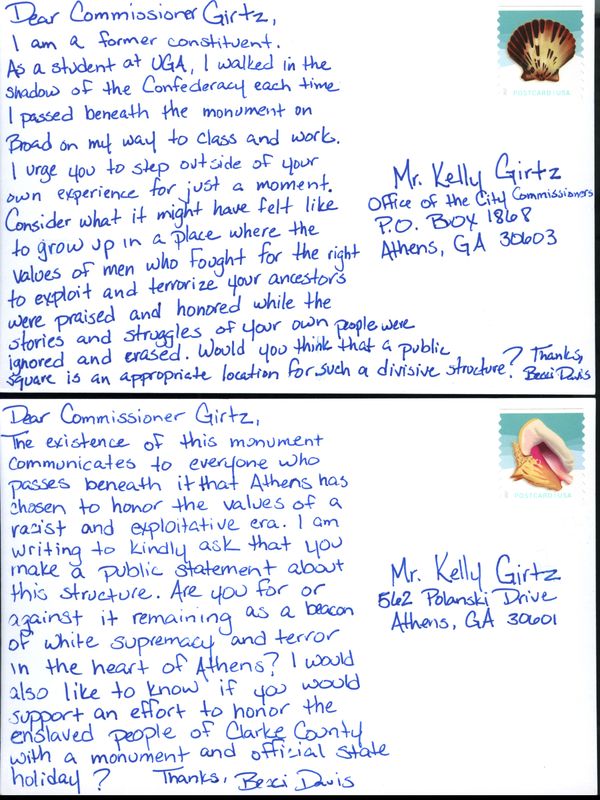 Dear Commissioner Girtz,
I am a former constituent.
As a student at UGA, I walked in the
shadow of the Confederacy each time
I passed beneath the monument on
Broad on my way to class and work.
I urge you to step outside of your
own experience for just a moment.
Consider what it might have felt like
to grow up in a place where the
values of men who fought for the right
to exploit and terrorize your ancestors
were praised and honored while the
stories and struggles of your own people were
ignored and erased. Would you think that a public
square is an appropriate location for such a divisive structure?
Thanks,
Becci Davis
POSTCARD USA
Mr. Kelly Girtz
Office of the City Commissioners
P.O. Box 1868
Athens, GA 30603
Dear Commissioner Girtz,
The existence of this monument
communicates to everyone who
passes beneath it that Athens has
chosen to honor the values of a
racist and exploitative era. I am
writing to kindly ask that you
make a public statement about
this structure. Are you for or
against it remaining as a beacon
of white supremacy and terror
in the heart of Athens? I would
also like to know if you would
support an effort to honor the
enslaved people of Clarke County
with a monument and official state
holiday?
Thanks, Becci Davis
POSTCARD USA
Mr. Kelly Girtz
562 Polanski Drive
Athens, GA 30601